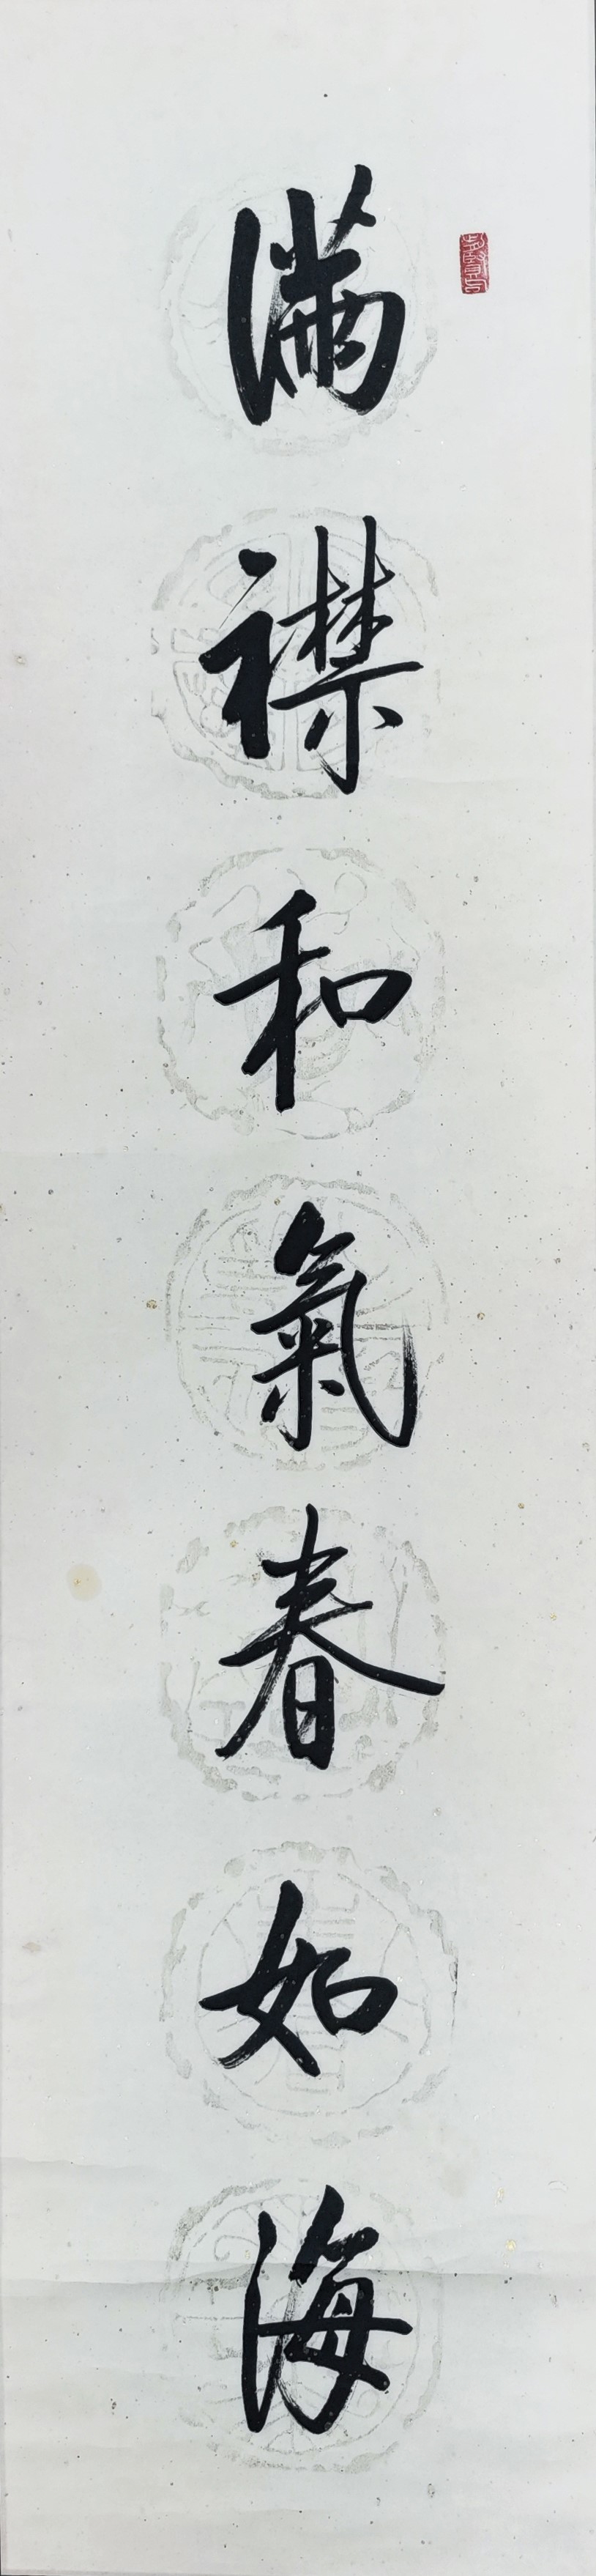 滿襟和氣春如海